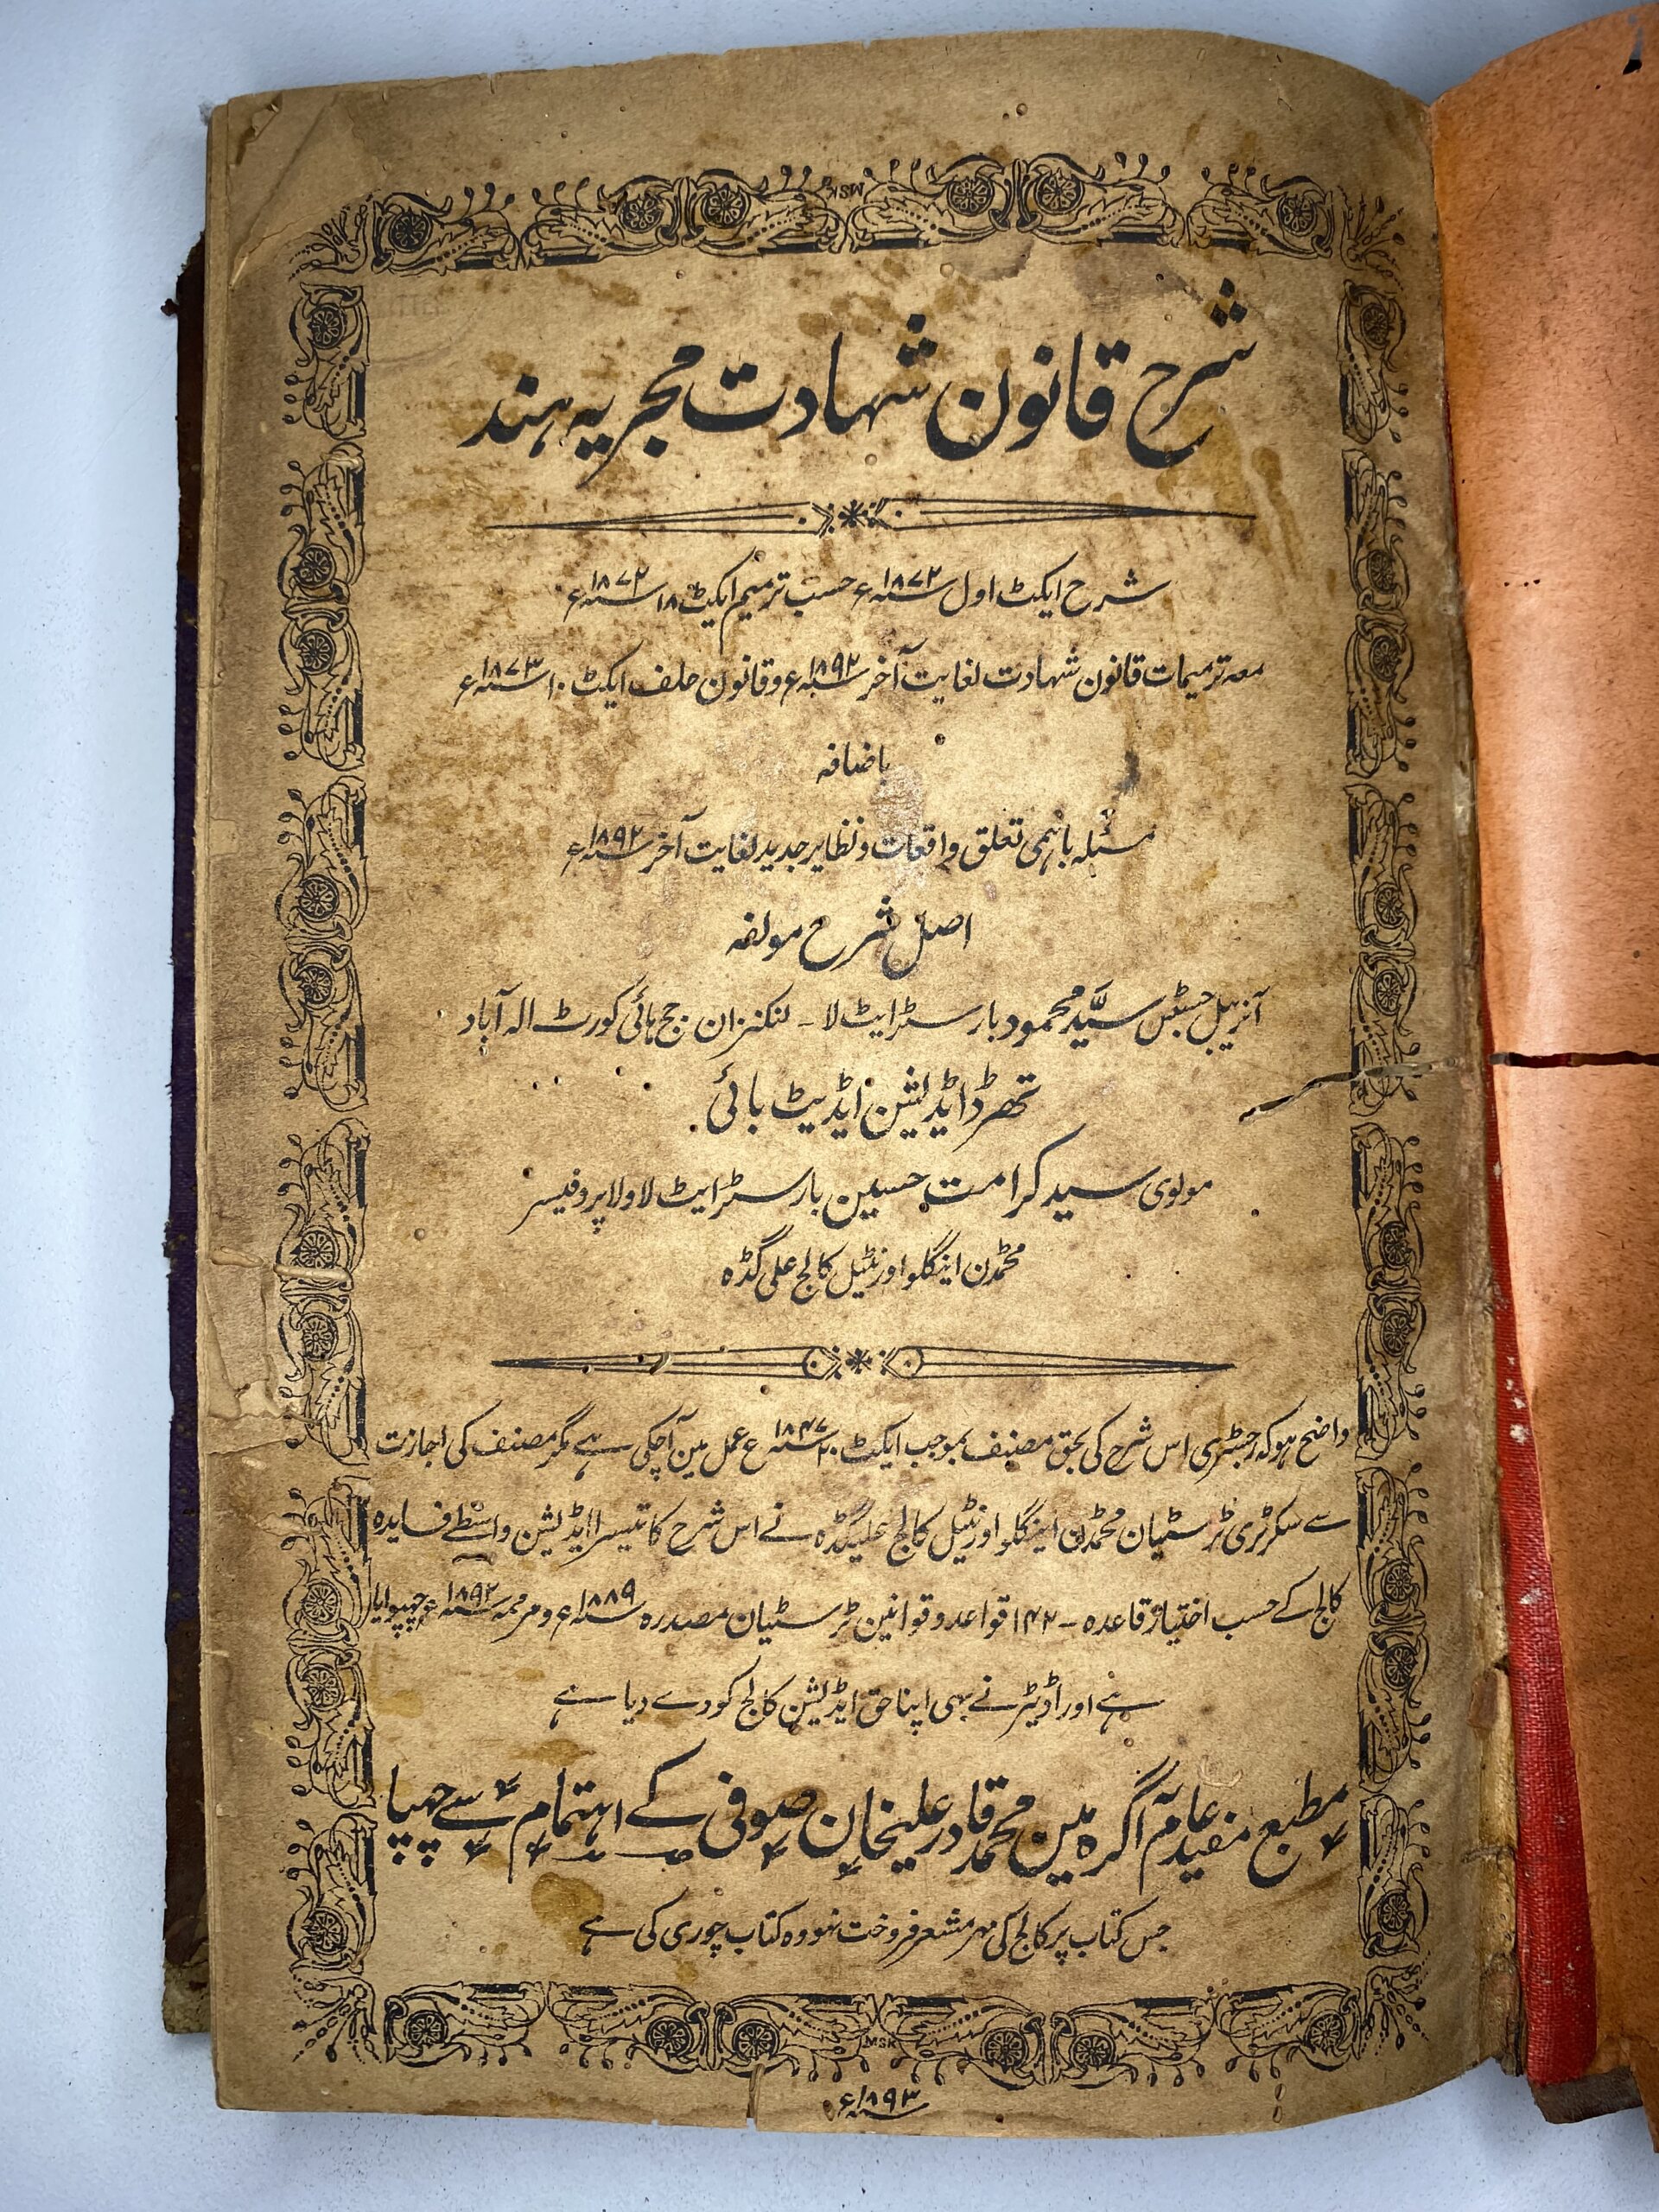 MSK
شرح قانون شہادت مجریہ ہند
شرح ایکٹ اول سنہ ۱۸۷۲ء حسب ترمیم ایکٹ ۱۸ سنہ ۱۸۷۲ء
معہ ترمیمات قانون شہادت لغایت آخر سنہ ۱۸۹۲ء و قانون حلف ایکٹ ۱۰ سنہ ۱۸۷۳ء
باضافہ
مسئلہ باہمی تعلق واقعات و نظایر جدید لغایت آخر سنہ ۱۸۹۲ء
اصل شرح مولفہ
آنریبل جسٹس سیَّد محمود بارسٹرایٹ لا - لنکنزان جج ہائی کورٹ الہ آباد
تھرڈ ایڈیشن ایڈیٹ بائی
مولوی سید کرامت حسین بارسٹرایٹ لا و لا پروفیسر
محمڈن اینگلو اورنٹیل کالج علی گڈہ
واضح ہو کہ رجسٹری اس شرح کی بحق مصنف بموجب ایکٹ ۲۰ سنہ ۱۸۴۷ ع عمل مین آچکی ہے مگر مصنف کی اجازت
سے سکرٹری ٹرسٹیان محمڈن اینگلو اورنٹیل کالج علیگڈہ نے اس شرح کا تیسرا ایڈیشن واسطے فایدہ
کالج کے حسب اختیار قاعدہ - ۱۴۲ قواعد و قوانین ٹرسٹیان مصدرہ سنہ ۱۸۸۹ء و مرممہ سنہ ۱۸۹۲ء چھپوایا
ہے اور اڈیٹر نے بھی اپنا حق ایڈیشن کالج کو دے دیا ہے
مطبع مفید عام آگرہ مین محمد قادر علیخان صوفی کے اہتمام سے چھپا
جس کتاب پر کالج کی مہر مشعر فروخت نہو وہ کتاب چوری کی ہے
MSK
سنہ ۱۸۹۳ء